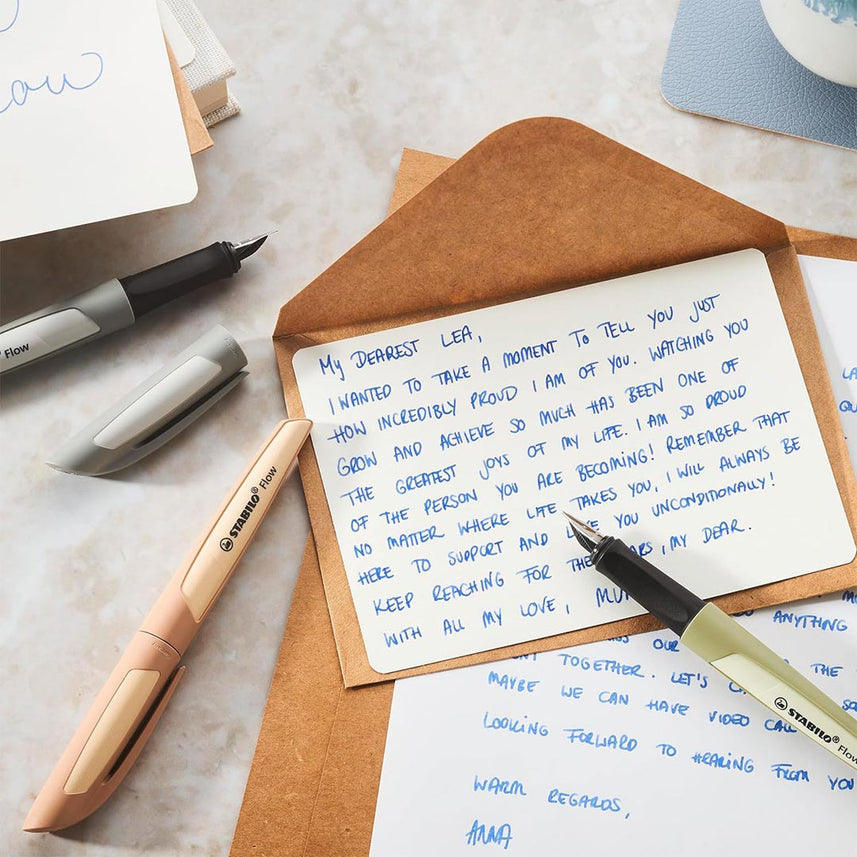 Flow
STABILO® Flow
My DEAREST LEA,
I WANTED TO TAKE A MOMENT TO TELL YOU JUST
HOW INCREDIBLY PROUD I AM OF YOU. WATCHING YOU
GROW AND ACHIEVE SO MUCH HAS BEEN ONE OF
THE GREATEST JOYS OF MY LIFE. I AM SO PROUD
OF THE PERSON YOU ARE BECOMING! REMEMBER THAT
NO MATTER WHERE LIFE TAKES YOU, I WILL ALWAYS BE
HERE TO SUPPORT AND YOU UNCONDITIONALLY!
KEEP REACHING FOR THE , MY DEAR.
WITH ALL MY LOVE,
ANYTHING
OUR
TOGETHER. LET'S THE
MAYBE WE CAN HAVE VIDEO
LOOKING FORWARD TO HEARING FROM YOU
WARM REGARDS,
ANNA
STABILO® Flow